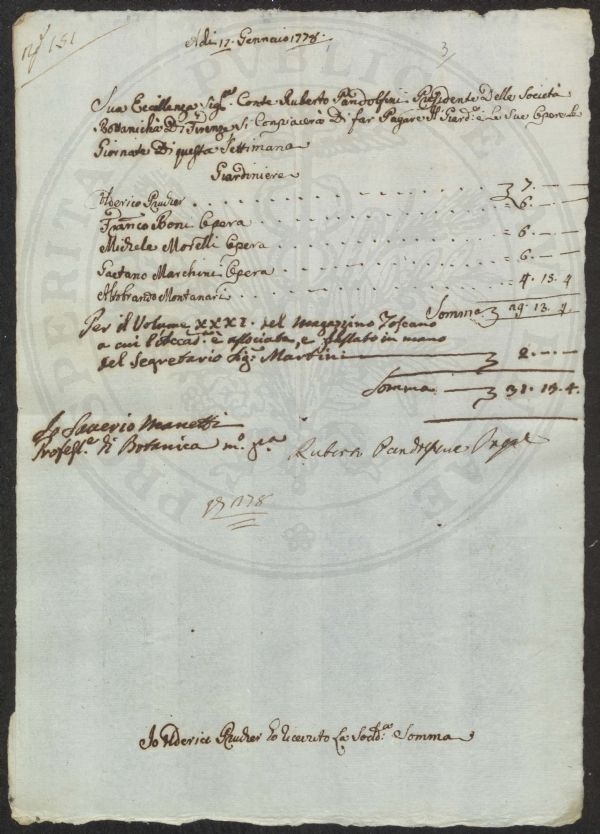 N.º 151
Adi 17. Gennaio 1778.
3
Sua Eccellenza Sig.re Conte Ruberto Pandolfini Presidente Delle Società
Bottanicha Di Firenze Si Conpiacerà Di far Pagare Il Giard:e e Le Sue Opere Le
Giornate Di questa Settimana
Giardiniere
Uderico Prucher 7. — —
Franco Boni Opera 6. — —
Michele Morelli Opera 6. — —
Gaetano Marchini Opera 6. — —
Aldobrando Montanari 4. 13. 4
Somma 29. 13. 4
Per il Volume XXXI. del Magazzino Toscano
a cui l'Accad.a è associata, e passato in mano
del Segretario Sig.r Martini 2. — —
Somma 31. 13. 4.
Io Saverio Manetti
Profess.e di Botanica m.o p.a
Ruberto Pandolfini
1778
Io Uderico Prucher ho ricevuto La Sodd.a Somma